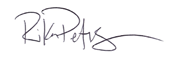 Rik Peters